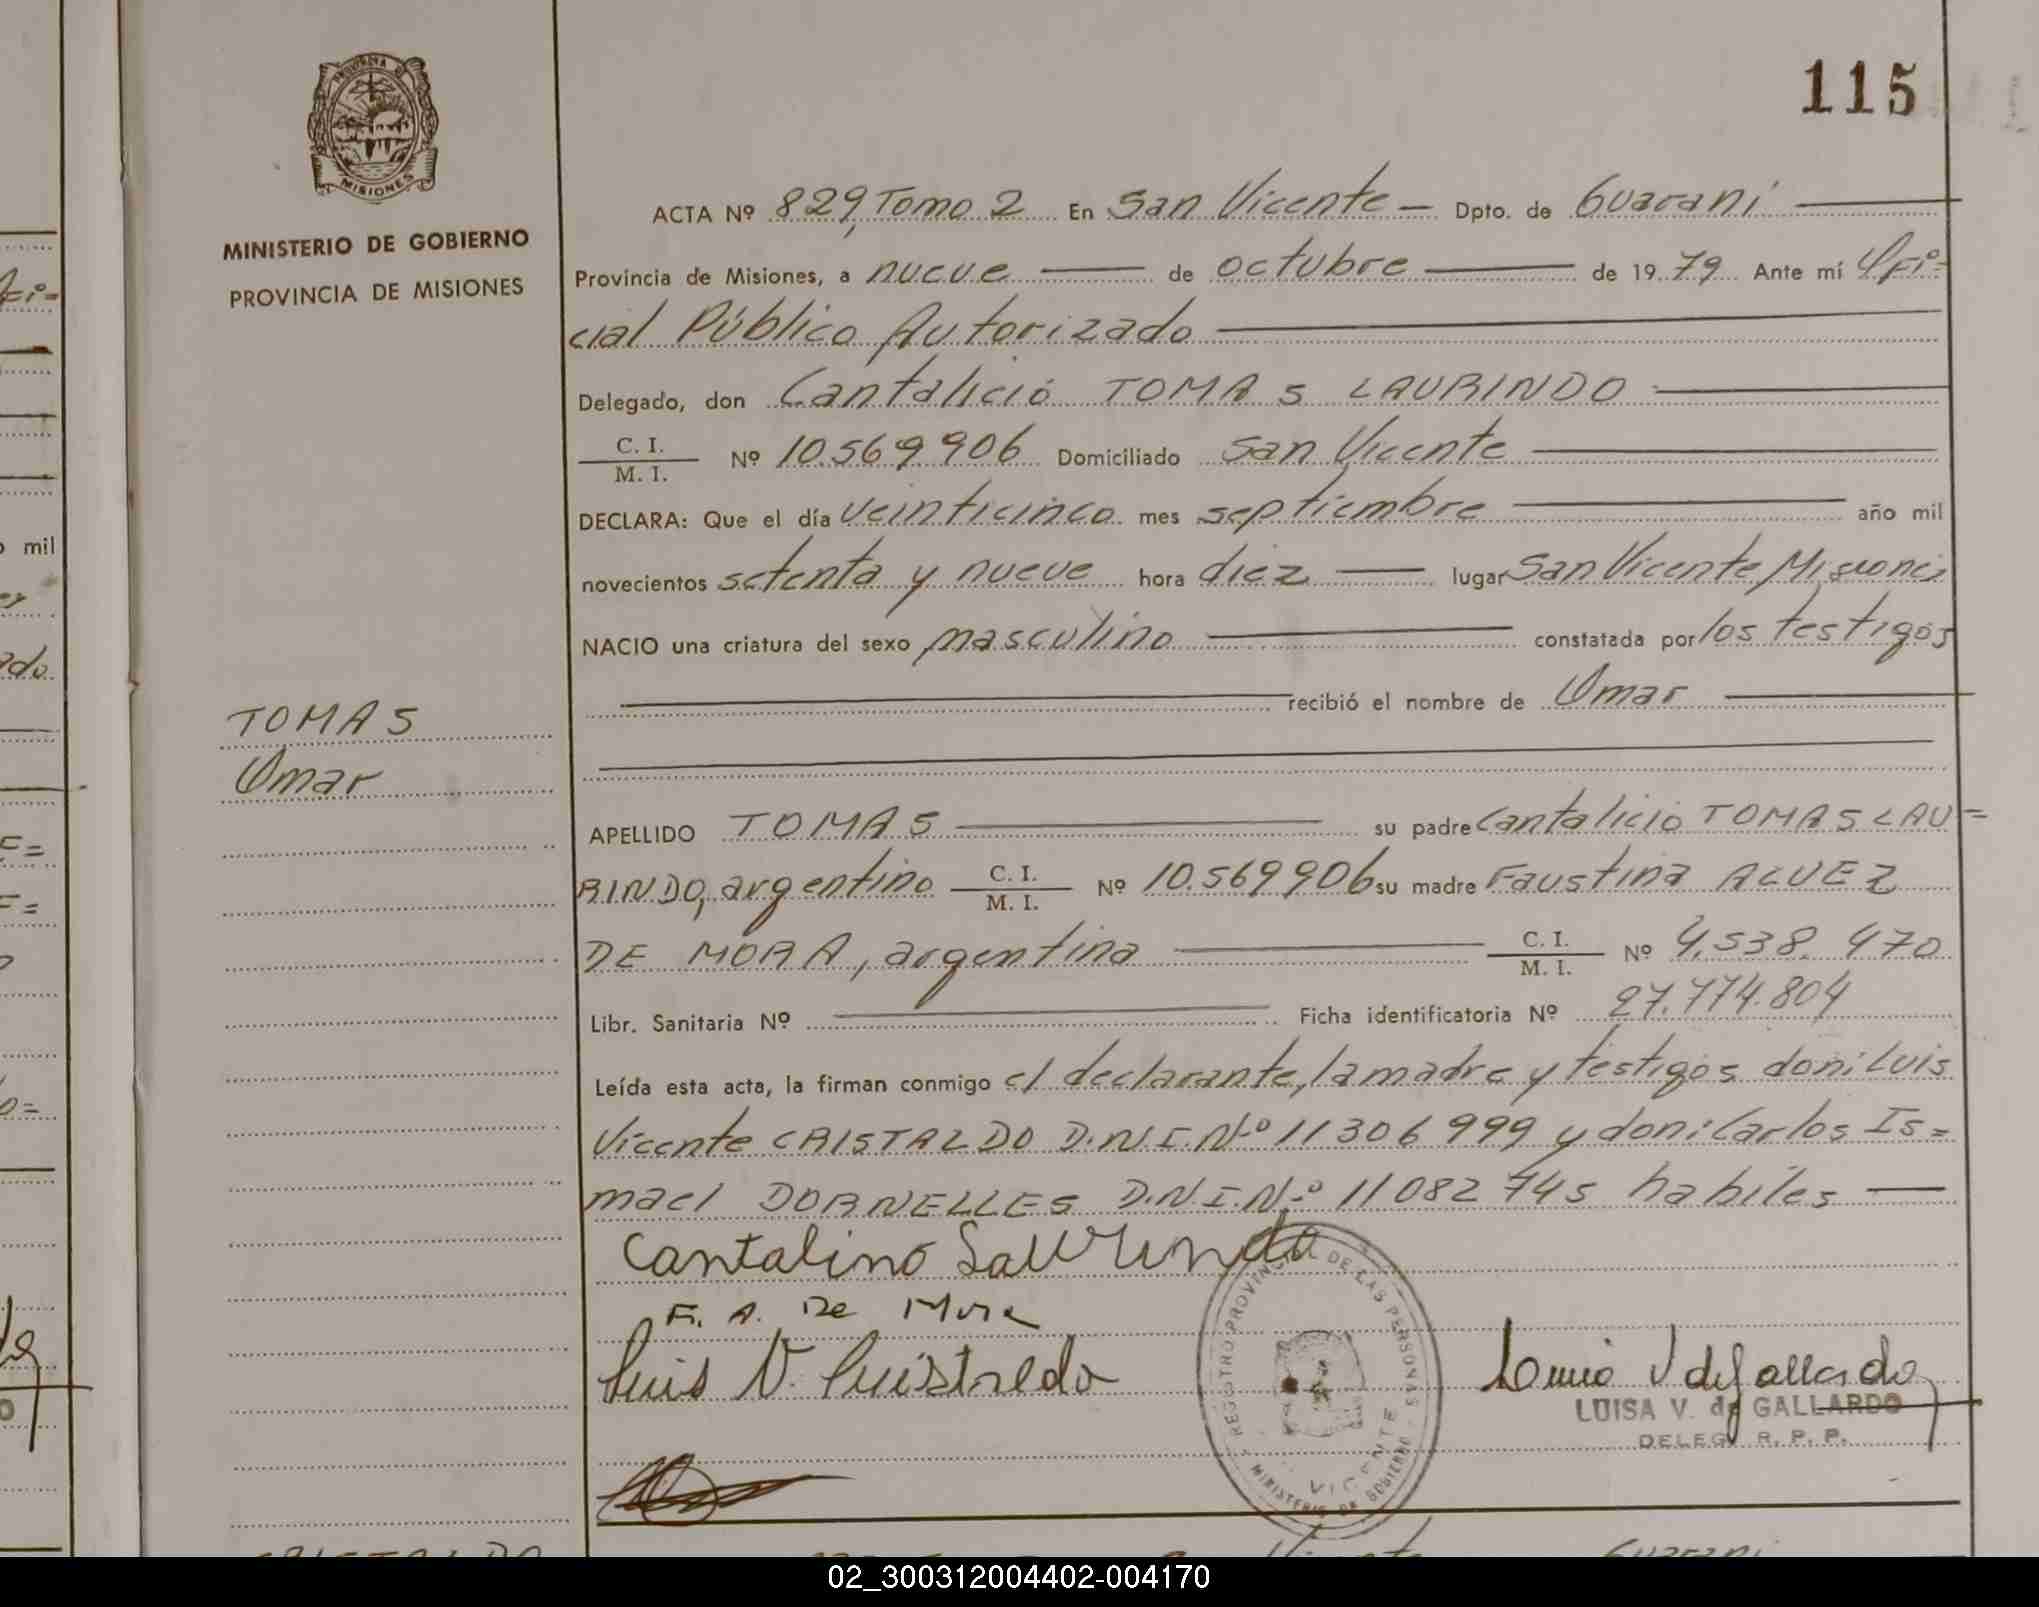 115
PROVINCIA DE
MISIONES
MINISTERIO DE GOBIERNO
PROVINCIA DE MISIONES
ACTA Nº 829, Tomo 2 En San Vicente — Dpto. de Guaraní
Provincia de Misiones, a nueve de octubre de 1979 Ante mí Ofi=
cial Público Autorizado
Delegado, don Cantalició TOMAS LAURINDO
C. I.
M. I. Nº 10.569.906 Domiciliado San Vicente
DECLARA: Que el día veinticinco mes septiembre año mil
novecientos setenta y nueve hora diez lugar San Vicente Misiones
NACIO una criatura del sexo masculino constatada por los testigos
recibió el nombre de Omar
TOMAS
Omar
APELLIDO TOMAS su padre Cantalició TOMAS LAU=
RINDO, argentino C. I.
M. I. Nº 10.569906 su madre Faustina ALVEZ
DE MORA, argentina C. I.
M. I. Nº 4.538.470
Libr. Sanitaria Nº Ficha identificatoria Nº 27.774.804
Leída esta acta, la firman conmigo el declarante, la madre y testigos don: Luis
Vicente CRISTALDO D.N.I.Nº 11306999 y don: Carlos Is=
mael DORNELLES D.N.I.Nº 11082745 habiles —
Cantalino Laurindo
F. A. De Mora
Luis V.
REGISTRO PROVINCIAL DE LAS PERSONAS
MINISTERIO DE GOBIERNO
VICENTE
LUISA V. de GALLARDO
DELEG. R. P. P.
CRISTALDO
Vicente Guaraní
02_300312004402-004170